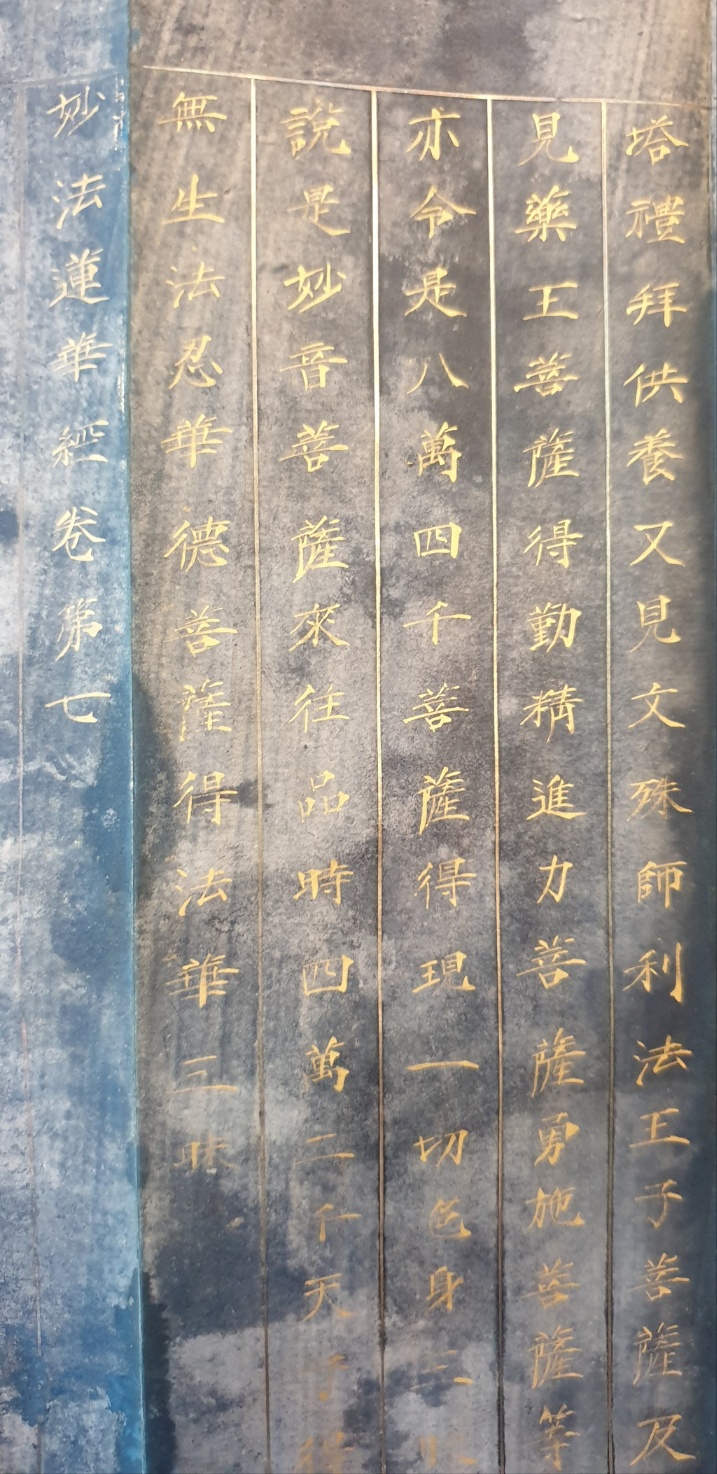 塔禮拜供養又見文殊師利法王子菩薩及
見藥王菩薩得勤精進力菩薩勇施菩薩等
亦令是八萬四千菩薩得現一切色身三昧
說是妙音菩薩來往品時四萬二千天子得
無生法忍華德菩薩得法華三昧
妙法蓮華經卷第七